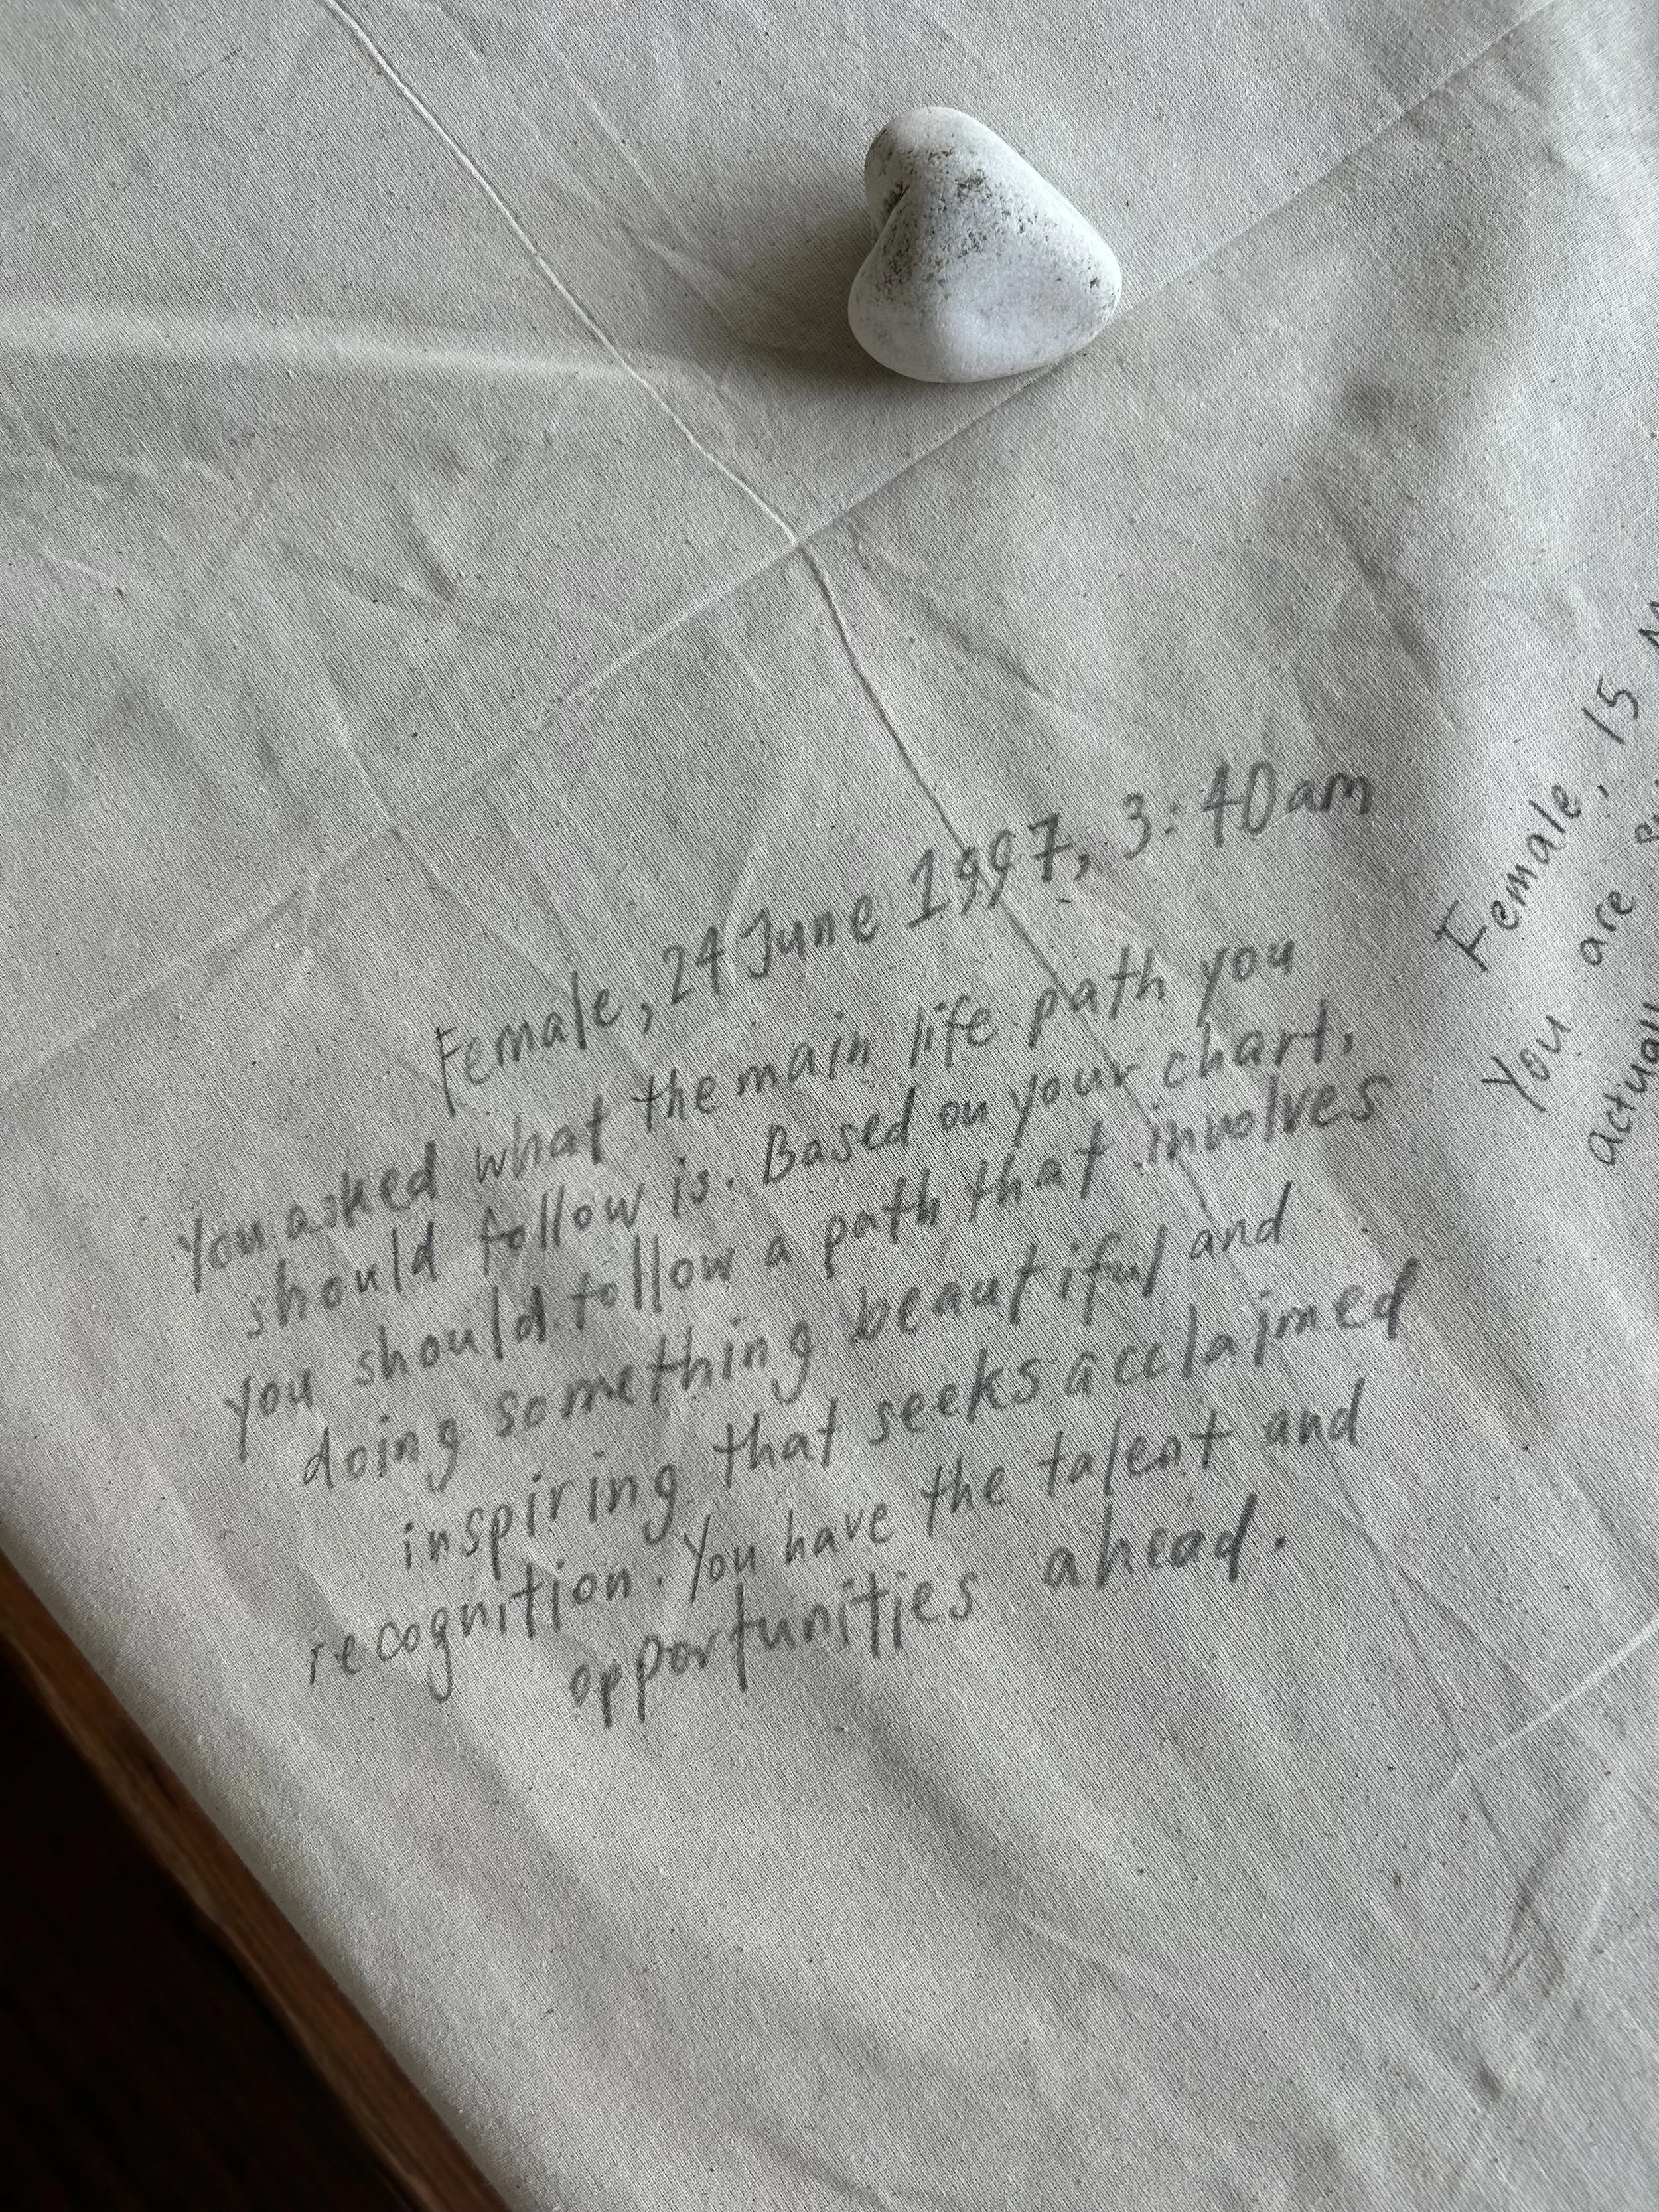 Female, 24 June 1997, 3:40am
You asked what the main life path you
should follow is. Based on your chart,
you should follow a path that involves
doing something beautiful and
inspiring that seeks acclaimed
recognition. You have the talent and
opportunities ahead.
Female, 15
You are